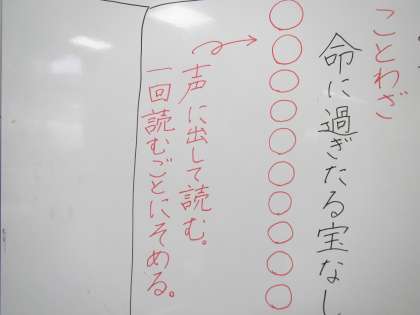 ことわざ
命に過ぎたる宝なし
○○○○○○○○○○
声に出して読む。
一回読むごとにそめる。